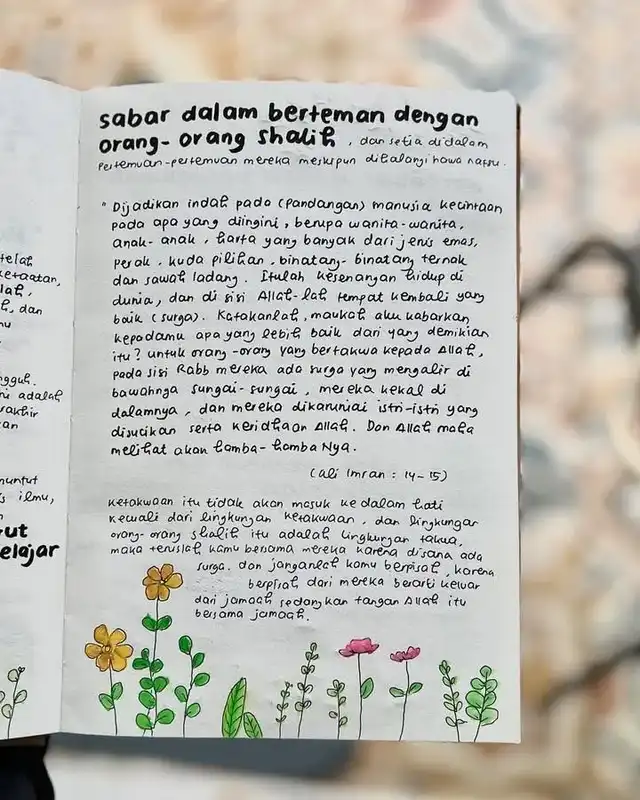 sabar dalam berteman dengan
orang-orang shalih , dan setia didalam
pertemuan-pertemuan mereka meskipun dihalangi hawa nafsu.
" Dijadikan indah pada (pandangan) manusia kecintaan
pada apa yang diingini, berupa wanita-wanita,
anak-anak, harta yang banyak dari jenis emas,
perak, kuda pilihan, binatang-binatang ternak
dan sawah ladang. Itulah kesenangan hidup di
dunia, dan di sisi Allah-lah tempat kembali yang
baik (surga). Katakanlah, maukah aku kabarkan
kepadamu apa yang lebih baik dari yang demikian
itu? untuk orang-orang yang bertakwa kepada Allah,
pada sisi Rabb mereka ada surga yang mengalir di
bawahnya sungai-sungai, mereka kekal di
dalamnya, dan mereka dikaruniai istri-istri yang
disucikan serta keridhaan Allah. Dan Allah maha
melihat akan hamba-hamba Nya.
(Ali Imran : 14-15)
ketakwaan itu tidak akan masuk ke dalam hati
kecuali dari lingkungan ketakwaan, dan lingkungan
orang-orang shalih itu adalah lingkungan takwa,
maka teruslah kamu bersama mereka karena disana ada
surga. dan janganlah kamu berpisah, karena
berpisah dari mereka berarti keluar
dari jamaah sedangkan tangan Allah itu
bersama jamaah.
telah
ketaatan,
lah,
h, dan
mu
ngguh.
ni adalah
rakhir
an
nuntut
s ilmu,
ut
elajar